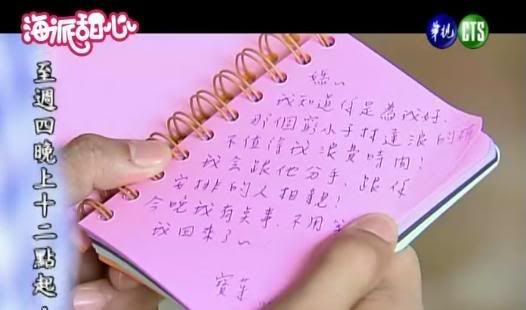 海派甜心
華視 CTS
至週四晚上十二點起
媽~
我知道你是為我好、
那個窮小子林達浪的確
不值得我浪費時間!
我會跟他分手、跟你
安排的人相親!
今晚我有美事、不用等
我回來了~
寶茅